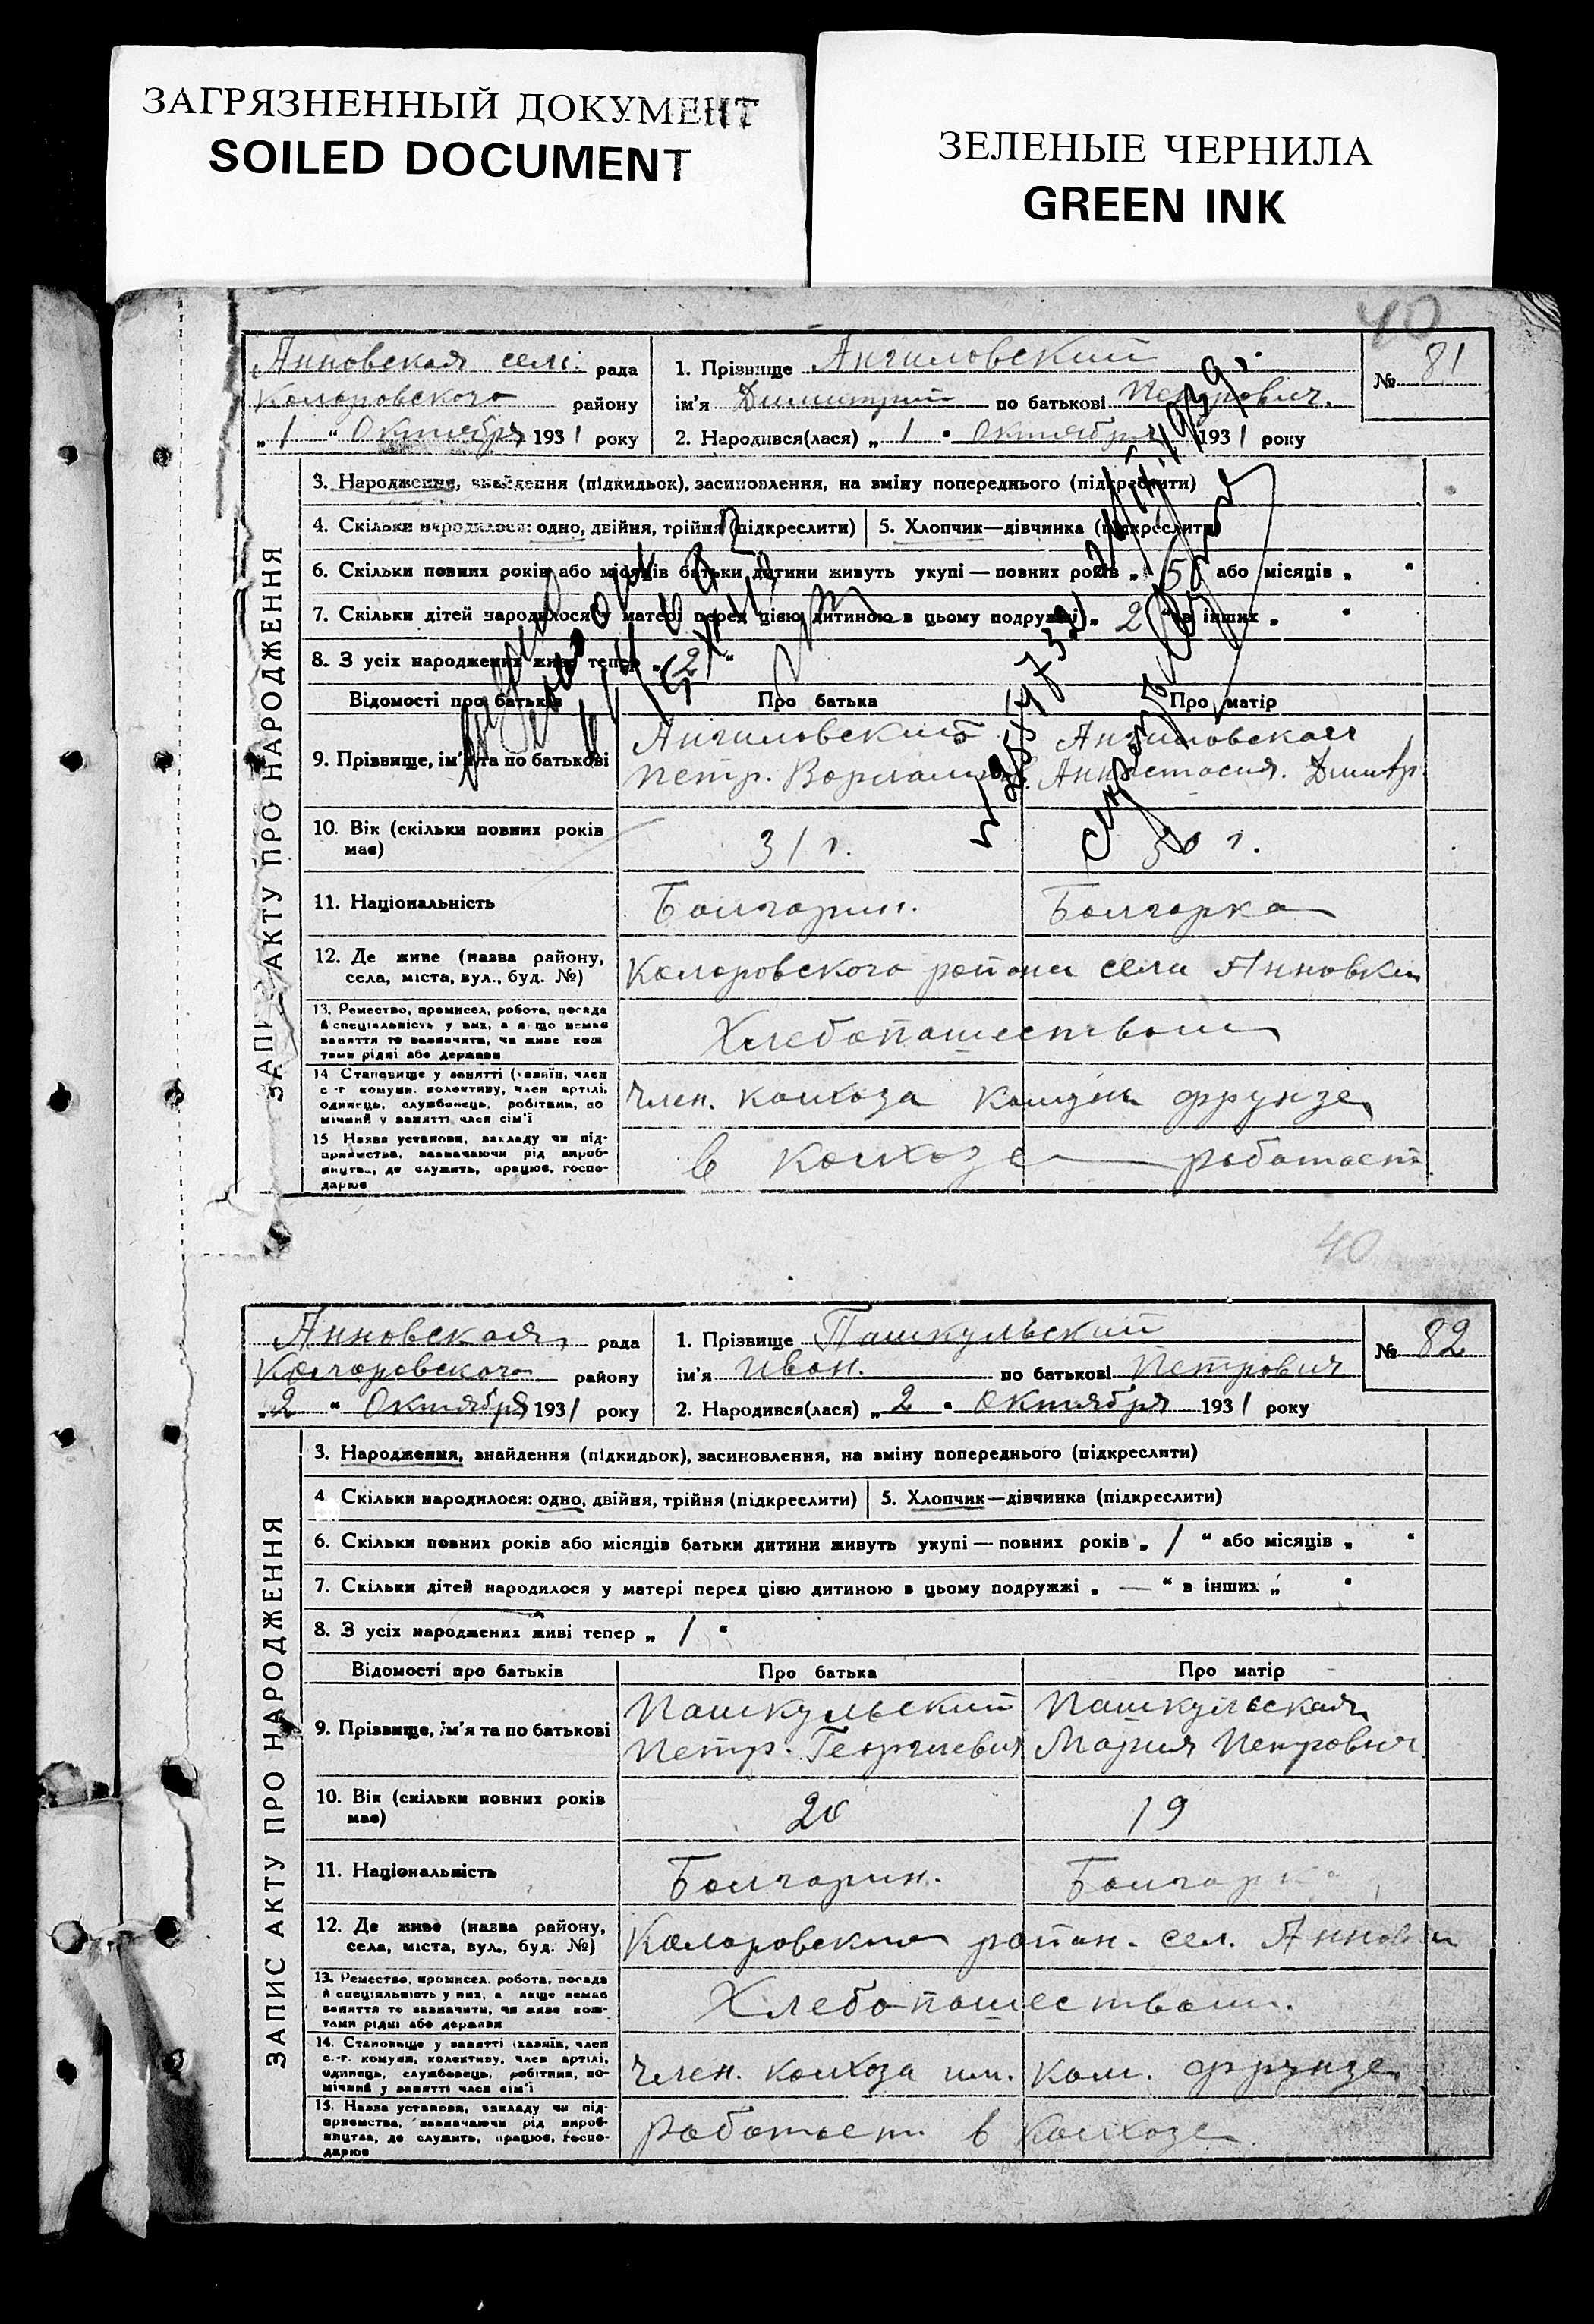 ЗАГРЯЗНЕННЫЙ ДОКУМЕНТ
SOILED DOCUMENT
ЗЕЛЕНЫЕ ЧЕРНИЛА
GREEN INK
40
Анновская сель. рада
Коларовского району
„1“ Октября 1931 року
1. Прізвище Ангиловский
ім'я Димитрий по батькові Петрович.
2. Народився(лася) „1“ Октября 1931 року
№ 81
ЗАПИС АКТУ ПРО НАРОДЖЕННЯ
3. Народження, знайдення (підкидьок), засиновлення, на зміну попереднього (підкреслити)
4. Скільки народилося: одно, двійня, трійня (підкреслити) 5. Хлопчик—дівчинка (підкреслити)
6. Скільки повних років або місяців батьки дитини живуть укупі — повних років „5“ або місяців „ “
7. Скільки дітей народилося у матері перед цією дитиною в цьому подружжі „2“ в інших „ “
8. З усіх народжених живі тепер „2“
Відомості про батьків Про батька Про матір
9. Прізвище, ім'я та по батькові
Ангиловский
Петр.
Ангиловская
Анастасия. Димитр
10. Вік (скільки повних років має)
31 г. 30 г.
11. Національність Болгарин. Болгарка
12. Де живе (назва району, села, міста, вул., буд. №)
Коларовского района села Анновки
13. Ремество, промисел, робота, посада й спеціяльність у них, а якщо немає заняття то зазначити, чи живе коштами рідні або держави
Хлебопашеством
14. Становище у занятті (хазяїн, член с.-г. комуни, колективу, член артілі, одинець, службовець, робітник, помічний у занятті член сім'ї
Член. колхоза Фрунзе
15. Назва установи, закладу чи підприємства, зазначаючи рід виробництва, де служить, працює, господарює
в колхозе — работает
40
Анновская рада
Коларовского району
„2“ Октября 1931 року
1. Прізвище Пашкульский
ім'я Иван. по батькові Петрович
2. Народився(лася) „2“ Октября 1931 року
№ 82
ЗАПИС АКТУ ПРО НАРОДЖЕННЯ
3. Народження, знайдення (підкидьок), засиновлення, на зміну попереднього (підкреслити)
4. Скільки народилося: одно, двійня, трійня (підкреслити) 5. Хлопчик—дівчинка (підкреслити)
6. Скільки повних років або місяців батьки дитини живуть укупі — повних років „1“ або місяців „ “
7. Скільки дітей народилося у матері перед цією дитиною в цьому подружжі „—“ в інших „ “
8. З усіх народжених живі тепер „1“
Відомості про батьків Про батька Про матір
9. Прізвище, ім'я та по батькові
Пашкульский
Петр. Георгиевич
Пашкульская
Мария Петровна
10. Вік (скільки повних років має)
20 19
11. Національність Болгарин. Болгарка
12. Де живе (назва району, села, міста, вул., буд. №)
район. сел. Анновки
13. Ремество, промисел, робота, посада й спеціяльність у них, а якщо немає заняття то зазначити, чи живе коштами рідні або держави
Хлебопашеством.
14. Становище у занятті (хазяїн, член с.-г. комуни, колективу, член артілі, одинець, службовець, робітник, помічний у занятті член сім'ї
Член. колхоза им. ком. Фрунзе
15. Назва установи, закладу чи підприємства, зазначаючи рід виробництва, де служить, працює, господарює
работает в колхозе